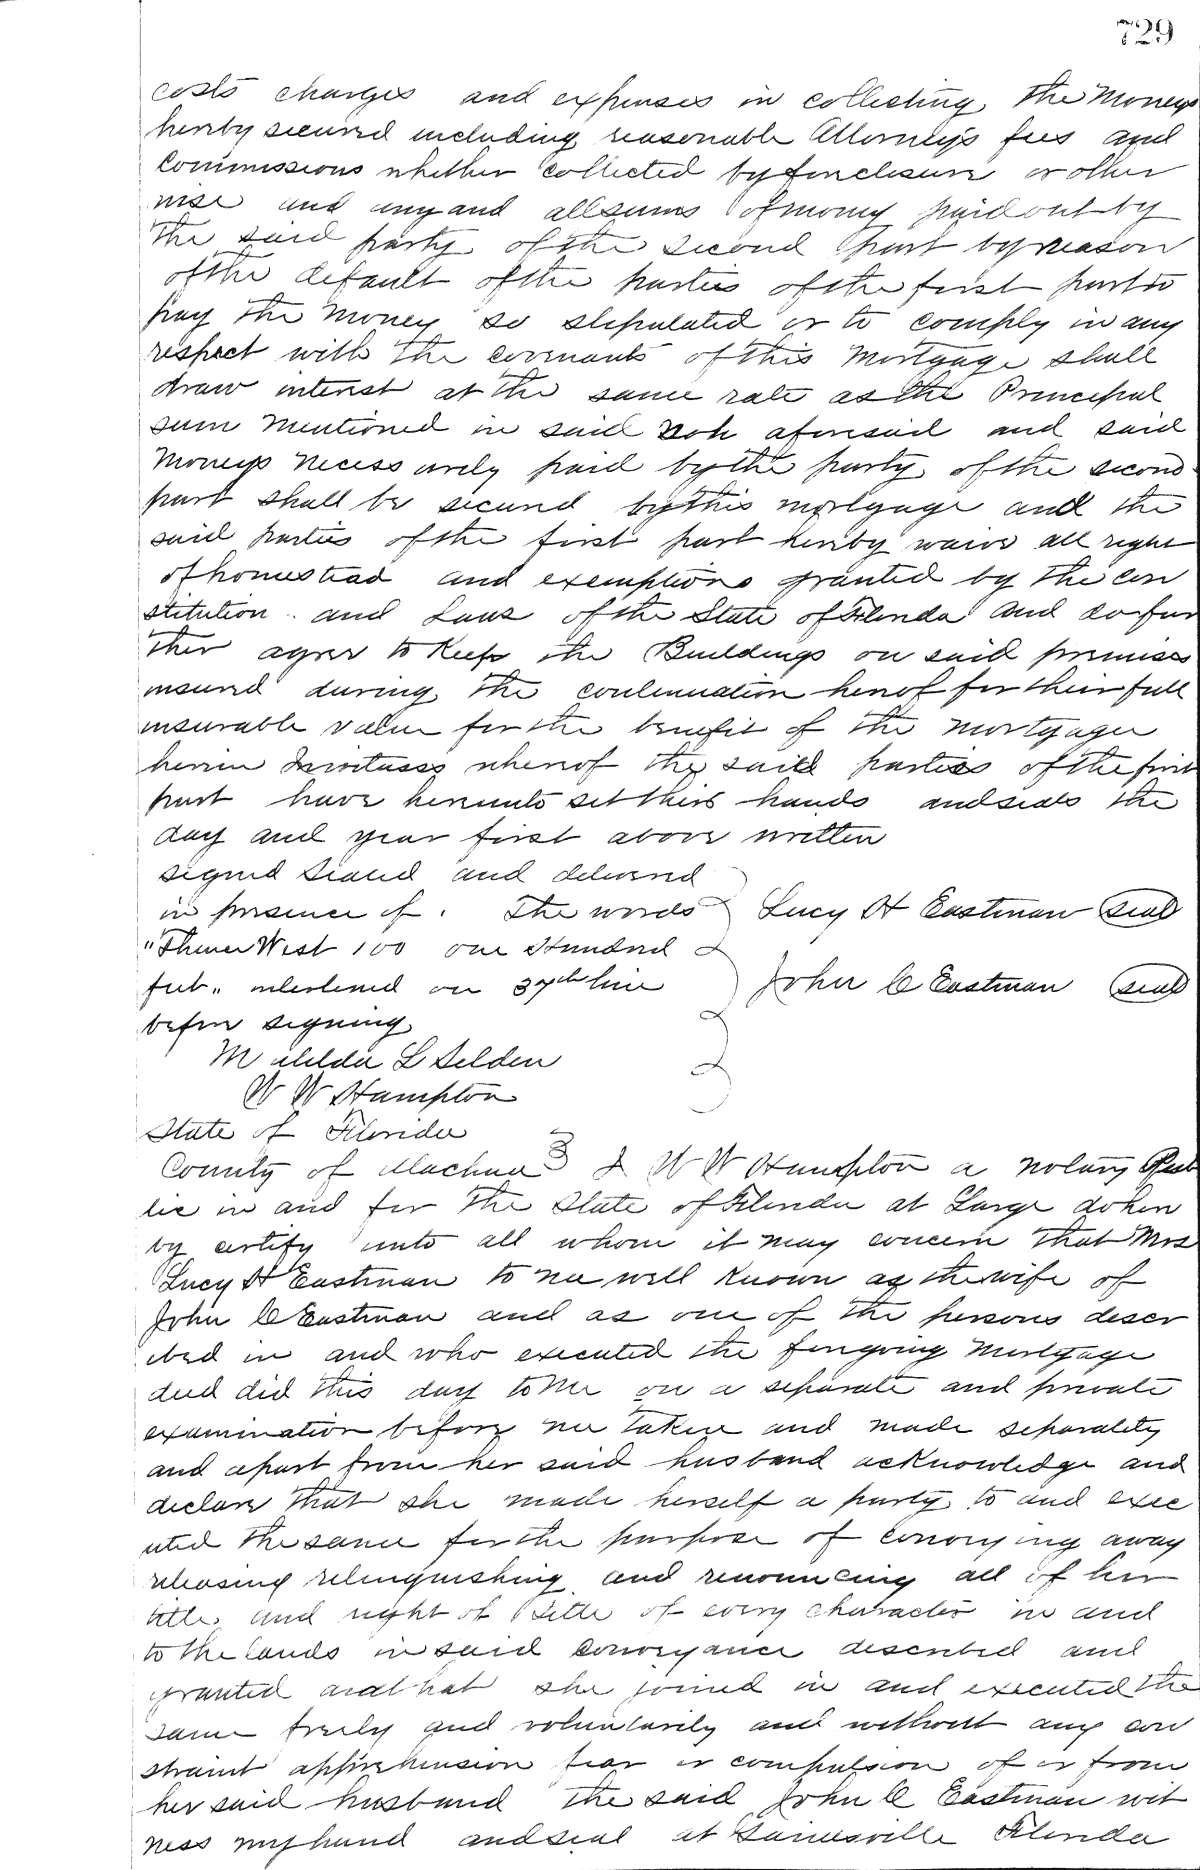 729
costs charges and expenses in collecting the moneys
hereby secured including reasonable Attorneys fees and
Commissions whether collected by foreclosure or other
wise and any and all sums of money paid out by
the said party of the second part by reason
of the default of the parties of the first part to
pay the money so stipulated or to comply in any
respect with the covenants of this Mortgage shall
draw interest at the same rate as the Principal
sum mentioned in said note aforesaid and said
moneys necessarily paid by the party of the second
part shall be secured by this mortgage and the
said parties of the first part hereby waive all right
of homestead and exemptions granted by the con
stitution and Laws of the State of Florida and do fur
ther agree to Keep the Buildings on said premises
insured during the continuation hereof for their full
insurable value for the benefit of the mortgagee
herein In witness whereof the said parties of the first
part have hereunto set their hands and seals the
day and year first above written
signed sealed and delivered
in presence of. The words
"Thence West 100 one Hundred
feet" interlined on 37th line
before signing
Lucy H Eastman seal
John C Eastman seal
Matilda L Selden
W W Hampton
State of Florida
County of Alachua } I W W Hampton a notary Pub
lic in and for the State of Florida at Large do here
by certify unto all whom it may concern that Mrs
Lucy H Eastman to me well Known as the wife of
John C Eastman and as one of the persons descr
ibed in and who executed the foregoing Mortgage
deed did this day to me on a separate and private
examination before me taken and made separately
and apart from her said husband acknowledge and
declare that she made herself a party to and exec
uted the same for the purpose of conveying away
releasing relinquishing and renouncing all of her
title and right of title of every character in and
to the lands in said conveyance described and
granted and that she joined in and executed the
same freely and voluntarily and without any con
straint apprehension fear or compulsion of or from
her said husband the said John C Eastman wit
ness my hand and seal at Gainesville Florida